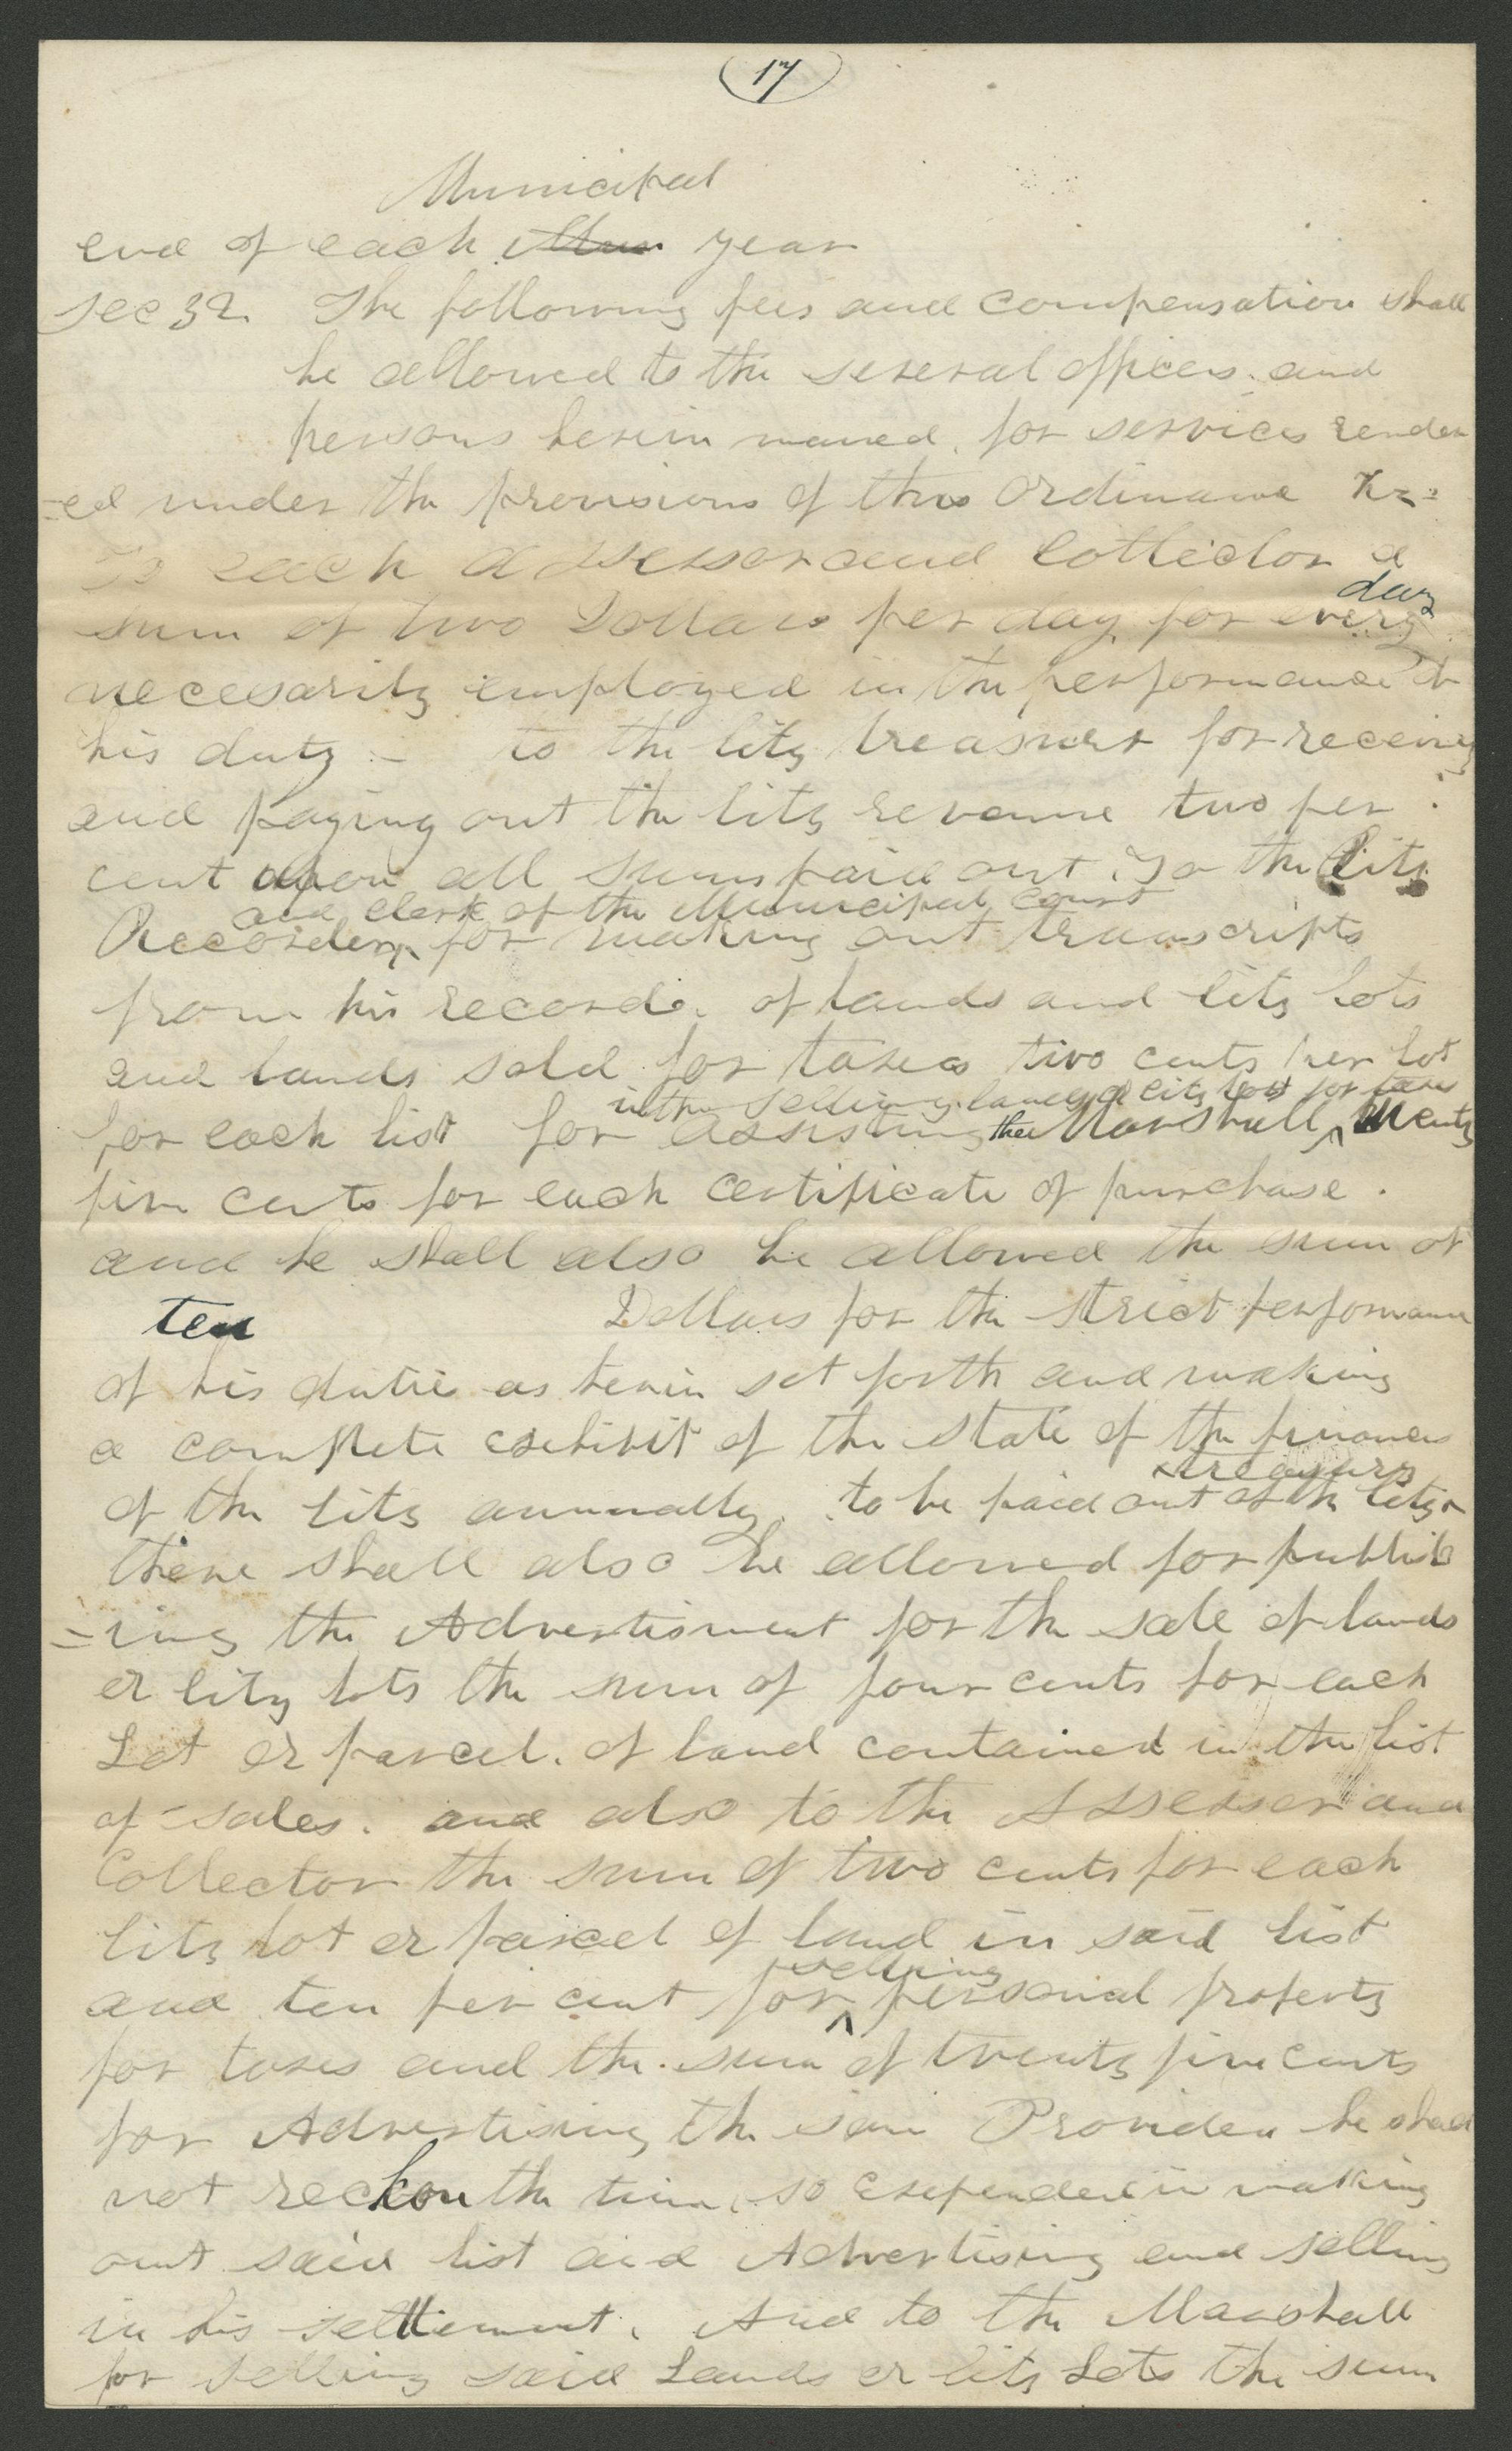 17
Municipal
end of each Mun year
Sec 32. The following fees and compensation shall
be allowed to the several officers. and
persons herein named, for services render
=ed under the provisions of this Ordinance
To each Assessor and Collector a
day
sum of two Dollars per day for every
necesarily employed in the performance of
his duty :- to the City treasurer for receivig
and paying out the City revenue two per
cent upon all sums paid out. To the City
and clerk of the Municipal court
Recorder, for making out transcripts
from his records. of lands and City lots
and lands sold for taxes two cents per lot
in the selling lands or city lots for taxes
for each list for assisting the Marshall, twenty
five cents for each certificate of purchase.
and he shall also be allowed the sum of
ten Dollars for the strict performance
of his dutie as herein set forth and making
a complete exhibit of the state of the finances
treasury
of the City annually, to be paid out of the City
there shall also be allowed for publish
=ing the Advertisment for the sale of lands
or City lots the sum of four cents for each
Lot or parcel. of land contained in the list
of sales. and also to the Assessor and
Collector the sum of two cents for each
City lot or parcel of land in said list
selling
and ten per cent for ^ personal property
for taxes and the sum of twenty five cents
for Advertising the same Provided he shall
not reckon the time, so expended in making
out said list and Advertising and selling
in his settlement. And to the Marshall
for selling said Lands or City Lots the sum